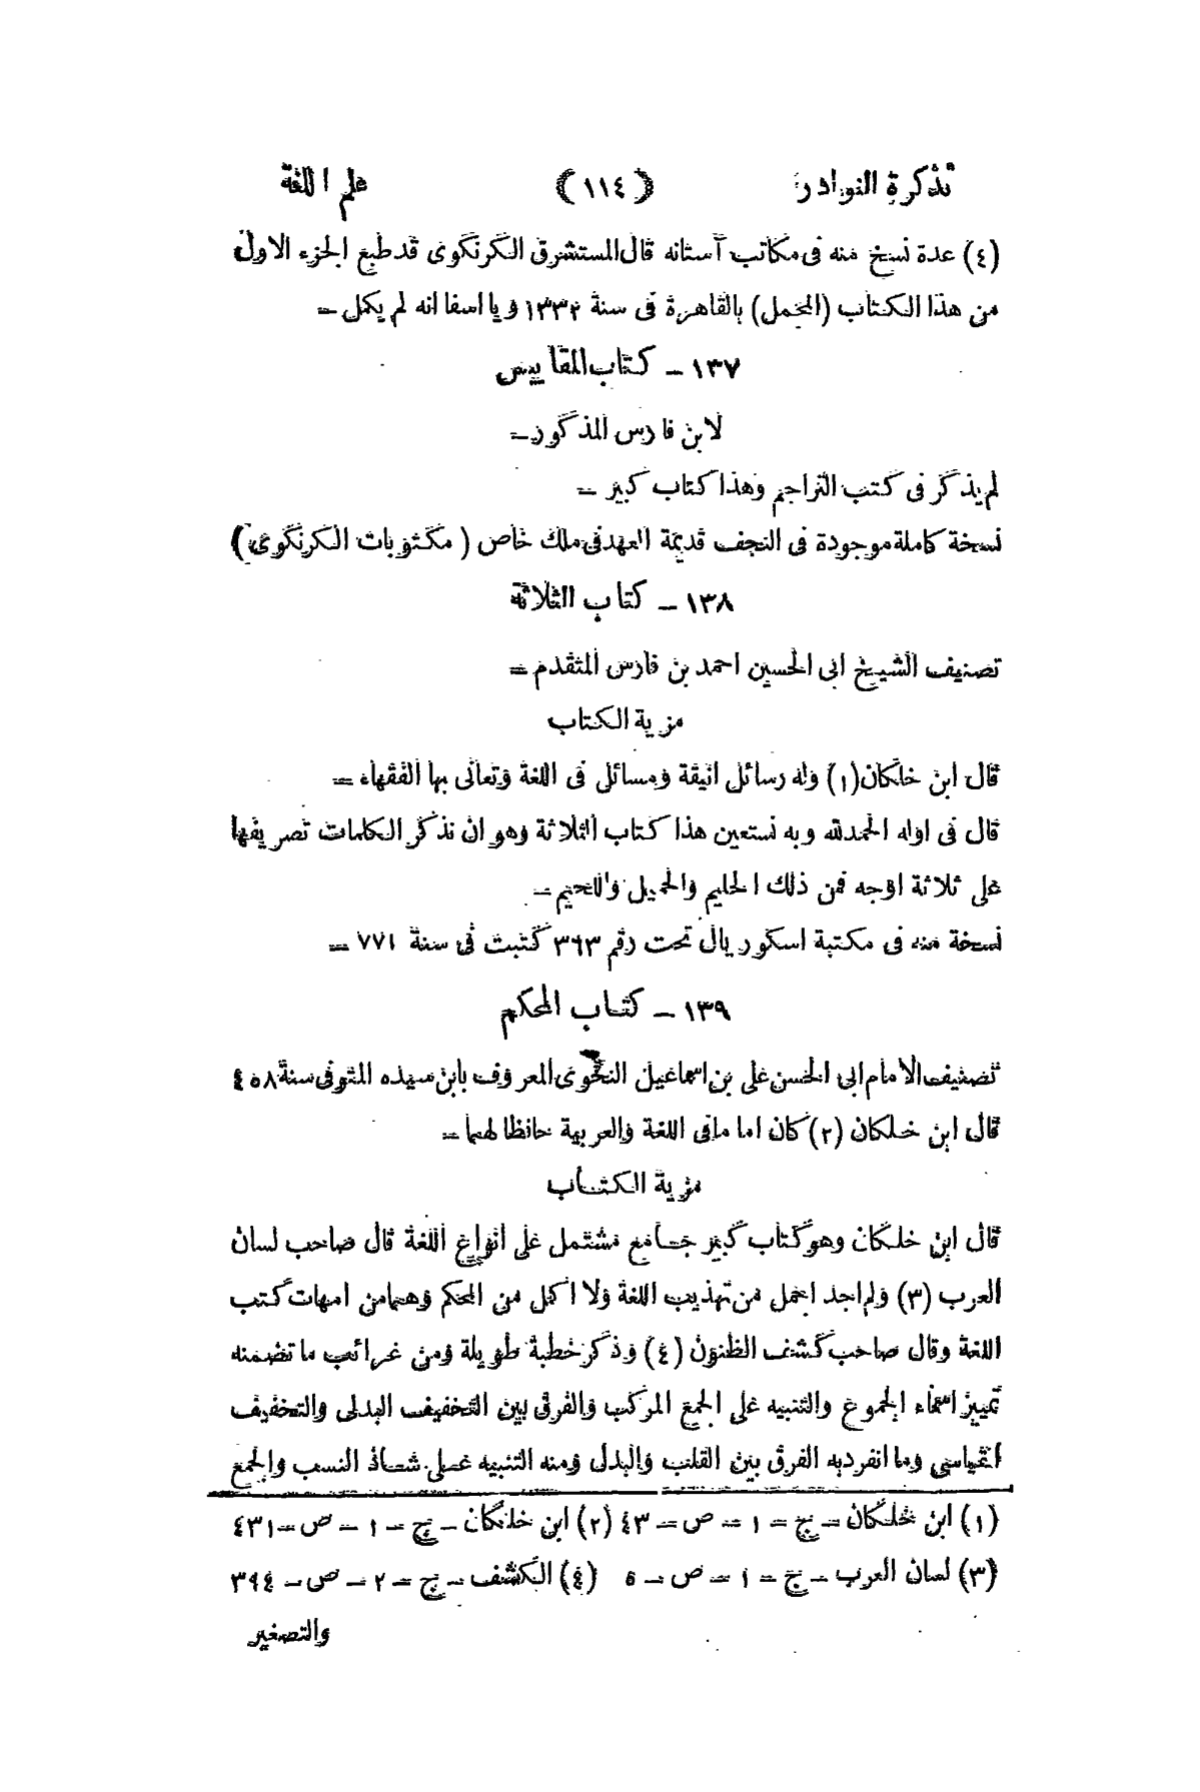 تذكرة النوادر (١١٤) علم اللغة
(٤) عدة نسخ منه فى مكاتب آستانه قال المستشرق الكرنكوى قد طبع الجزء الاول
من هذا الكتاب (المجمل) بالقاهرة فى سنة ١٣٣٢ ويا اسفا انه لم يكمل –
١٣٧ – كتاب المقاييس
لابن فارس المذكور –
لم يذكر فى كتب التراجم وهذا كتاب كبير –
نسخة كاملة موجودة فى النجف قديمة العهد فى ملك خاص (مكتوبات الكرنكوى)
١٣٨ – كتاب الثلاثة
تصنيف الشيخ ابى الحسين احمد بن فارس المتقدم –
مزية الكتاب
قال ابن خلكان (١) وله رسائل انيقة ومسائل فى اللغة وتعالى بها الفقهاء –
قال فى اوله الحمدلله وبه نستعين هذا كتاب الثلاثة وهو ان نذكر الكلمات تصريفها
على ثلاثة اوجه فمن ذلك الحليم والحميل واللحيم –
نسخة منه فى مكتبة اسكوريال تحت رقم ٣٦٣ كتبت فى سنة ٧٧١ –
١٣٩ – كتاب المحكم
تصنيف الامام ابى الحسن على بن اسماعيل النحوى المعروف بابن سيده المتوفى سنة ٤٥٨
قال ابن خلكان (٢) كان اماما فى اللغة والعربية حافظا لهما –
مزية الكتاب
قال ابن خلكان وهو كتاب كبير جامع مشتمل على انواع اللغة قال صاحب لسان
العرب (٣) ولم اجد اجمل من تهذيب اللغة ولا اكمل من المحكم وهما من امهات كتب
اللغة وقال صاحب كشف الظنون (٤) وذكر خطبة طويلة ومن غرائب ما تضمنه
تمييز اسماء الجموع والتنبيه على الجمع المركب والفرق بين التخفيف البدلى والتخفيف
القياسى وما انفرد به الفرق بين القلب والبدل ومنه التنبيه على شاذ النسب والجمع
(١) ابن خلكان – ج – ١ – ص – ٤٣ (٢) ابن خلكان – ج – ١ – ص – ٤٣١
(٣) لسان العرب – ج – ١ – ص – ٥ (٤) الكشف – ج – ٢ – ص – ٣٩٤
والتصغير